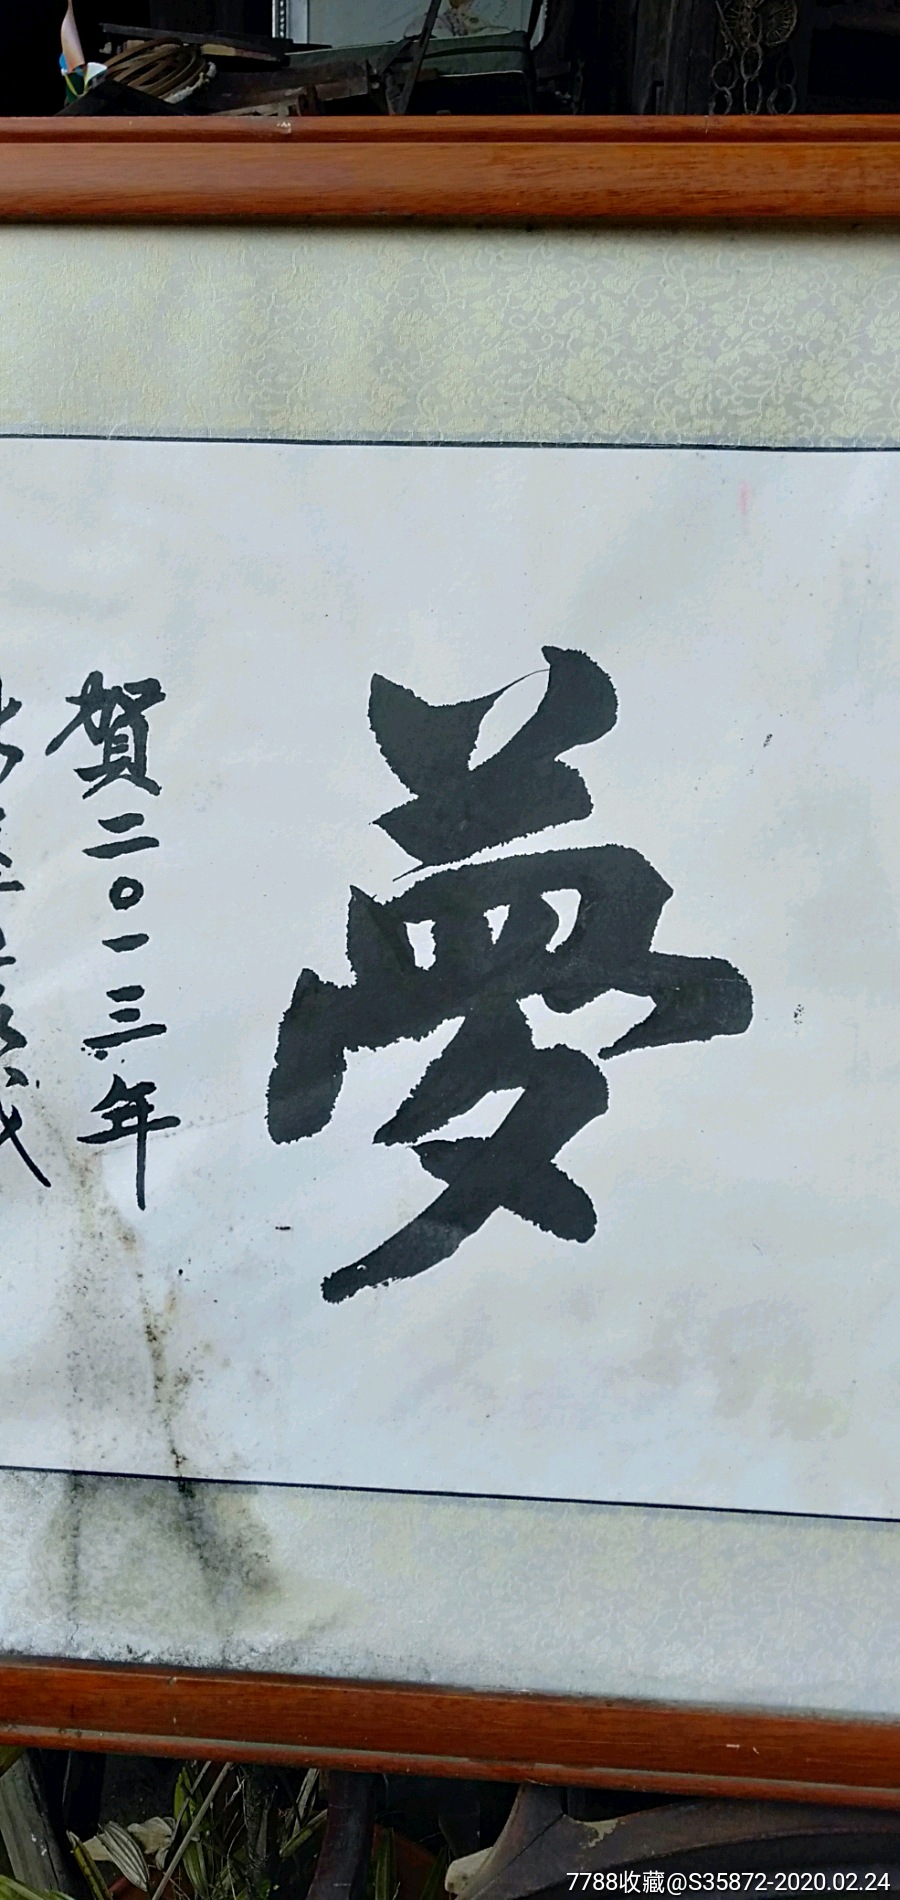 夢
賀二〇一三年
7788收藏@S35872-2020.02.24